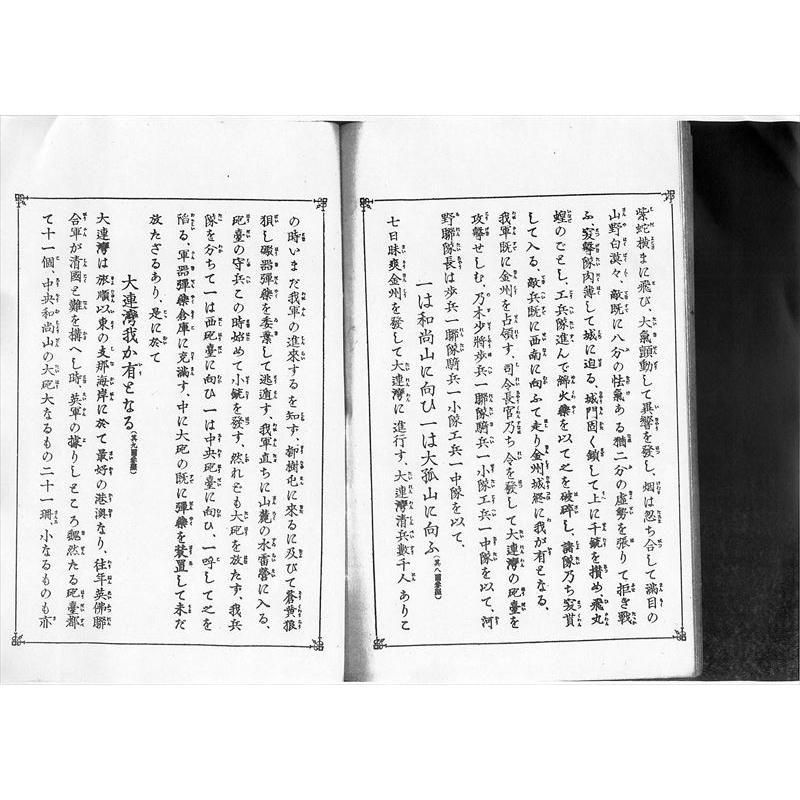 紫蛇横まに飛び、大氣顫動して異響を發し、烟は忽ち合して滿目の
山野白漠々、敵既に八分の怯氣ある猶二分の虛勢を張りて拒き戰
ふ、突擊隊肉薄して城に迫る、城門固く鎖して上に千銃を攅め、飛丸
蝗のごとし、工兵隊進んで綿火藥を以て之を破碎し、諸隊乃ち突貫
して入る、敵兵既に西南に向ふて走り金州城終に我が有となる、
我軍既に金州を占領す、司令長官乃ち令を發して大連灣の砲臺を
攻擊せしむ、乃木少將歩兵一聯隊騎兵一小隊工兵一中隊を以て、河
野聯隊長は歩兵一聯隊騎兵一小隊工兵一中隊を以て、
一は和尚山に向ひ一は大孤山に向ふ(其八圖參照)
七日昧爽金州を發して大連灣に進行す、大連灣清兵數千人ありこ
の時いまだ我軍の進來するを知ず、柳樹屯に來るに及びて蒼黄狼
狽し礟器彈藥を委棄して逃遁す、我軍直ちに山麓の水雷營に入る、
砲臺の守兵この時始めて小銃を發す、然れども大砲を放たず、我兵
隊を分ちて一は西砲臺に向ひ一は中央砲臺に向ひ、一呼して之を
陷る、軍器彈藥倉庫に充滿す、中に大砲の既に彈藥を裝置して未だ
放たざるあり、是に於て
大連灣我か有となる(其九圖參照)
大連灣は旅順以東の支那海岸に於て最好の港澳なり、往年英佛聯
合軍が清國と難を構へし時、英軍の據りしところ巍然たる砲臺都
て十一個、中央和尚山の大砲大なるもの二十一珊、小なるものも亦